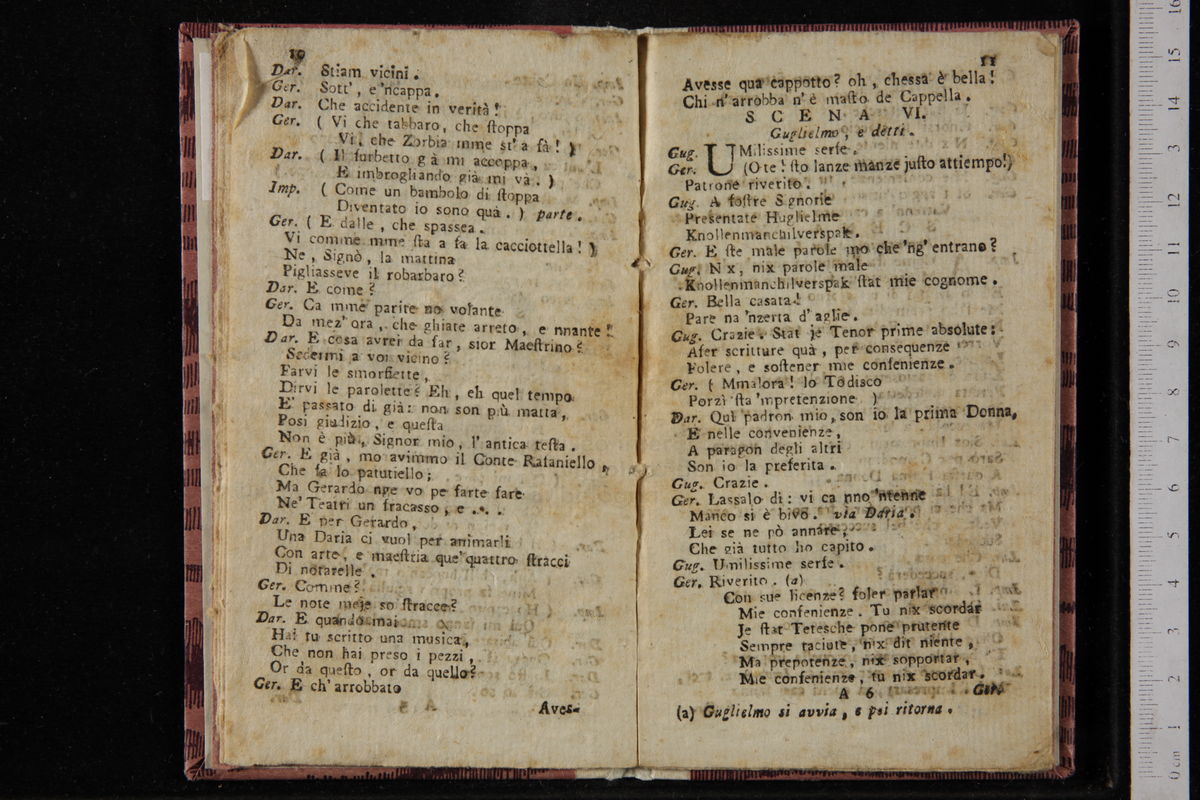 10
Dar. Stiam vicini.
Ger. Sott', e 'ncappa.
Dar. Che accidente in verità!
Ger. ( Vi che tabbaro, che ſtoppa
Vi, che Zorbia mme st' a fà! )
Dar. ( Il furbetto già mi accoppa,
E imbrogliando già mi va. )
Imp. ( Come un bambolo di ſtoppa
Diventato io sono quà. ) parte.
Ger. ( E dalle, che spassea.
Vi comme mme ſta a fa la cacciottella! )
Ne, Signò, la mattina
Pigliasseve il robarbaro?
Dar. E come?
Ger. Ca mme parite no volante
Da mez' ora, che ghiate arreto, e nnante!
Dar. E cosa avrei da far, sior Maeſtrino?
Sedermi a voi vicino?
Farvi le smorfiette,
Dirvi le parolette? Eh, eh quel tempo
E' passato di già: non son più matta,
Posi giudizio, e queſta
Non è più, Signor mio, l' antica teſta.
Ger. E già, mo avimmo il Conte Rafaniello,
Che fa lo patutiello;
Ma Gerardo nce vo pe farte fare
Ne' Teatri un fracasso, e ...
Dar. E per Gerardo,
Una Daria ci vuol per animarli
Con arte, e maeſtria que' quattro ſtracci
Di notarelle.
Ger. Comme?
Le note meje so ſtracce?
Dar. E quando mai
Hai tu scritto una musica,
Che non hai preso i pezzi,
Or da queſto, or da quello?
Ger. E ch' arrobbato
Aves-
11
Avesse qua cappotto? oh, chessa è bella!
Chi n' arrobba n' è maſto de Cappella.
SCENA VI.
Guglielmo, e detti.
Gug. UMilissime serfe.
Ger. (O te! ſto lanze manze juſto attiempo!)
Patrone riverito.
Gug. A foſtre Signorie
Presentate Huglielme
Knollenmanchilverspak.
Ger. E ſte male parole mo che 'ng' entrano?
Gug. Nix, nix parole male
Knollenmanchilverspak ſtat mie cognome.
Ger. Bella casata!
Pare na 'nzerta d' aglie.
Gug. Crazie. Stat je Tenor prime absolute:
Afer scritture quà, per consequenze
Folere, e softener mie confenienze.
Ger. ( Mmalora! lo Todisco
Porzì ſta 'mpretenzione )
Dar. Quì padron mio, son io la prima Donna,
E nelle convenienze,
A paragon degli altri
Son io la preferita.
Gug. Crazie.
Ger. Lassalo di: vi ca nno 'ntenne
Manco si è bivo. via Daria.
Lei se ne pò annare,
Che già tutto ho capito.
Gug. Umilissime serfe.
Ger. Riverito. (a)
Con sue licenze? foler parlar
Mie confenienze. Tu nix scordar
Je ſtat Tetesche pone prutente
Sempre taciute, nix dit niente,
Ma prepotenze, nix sopportar,
Mie confenienze, tu nix scordar.
A 6 Ger.
(a) Guglielmo si avvia, e poi ritorna.